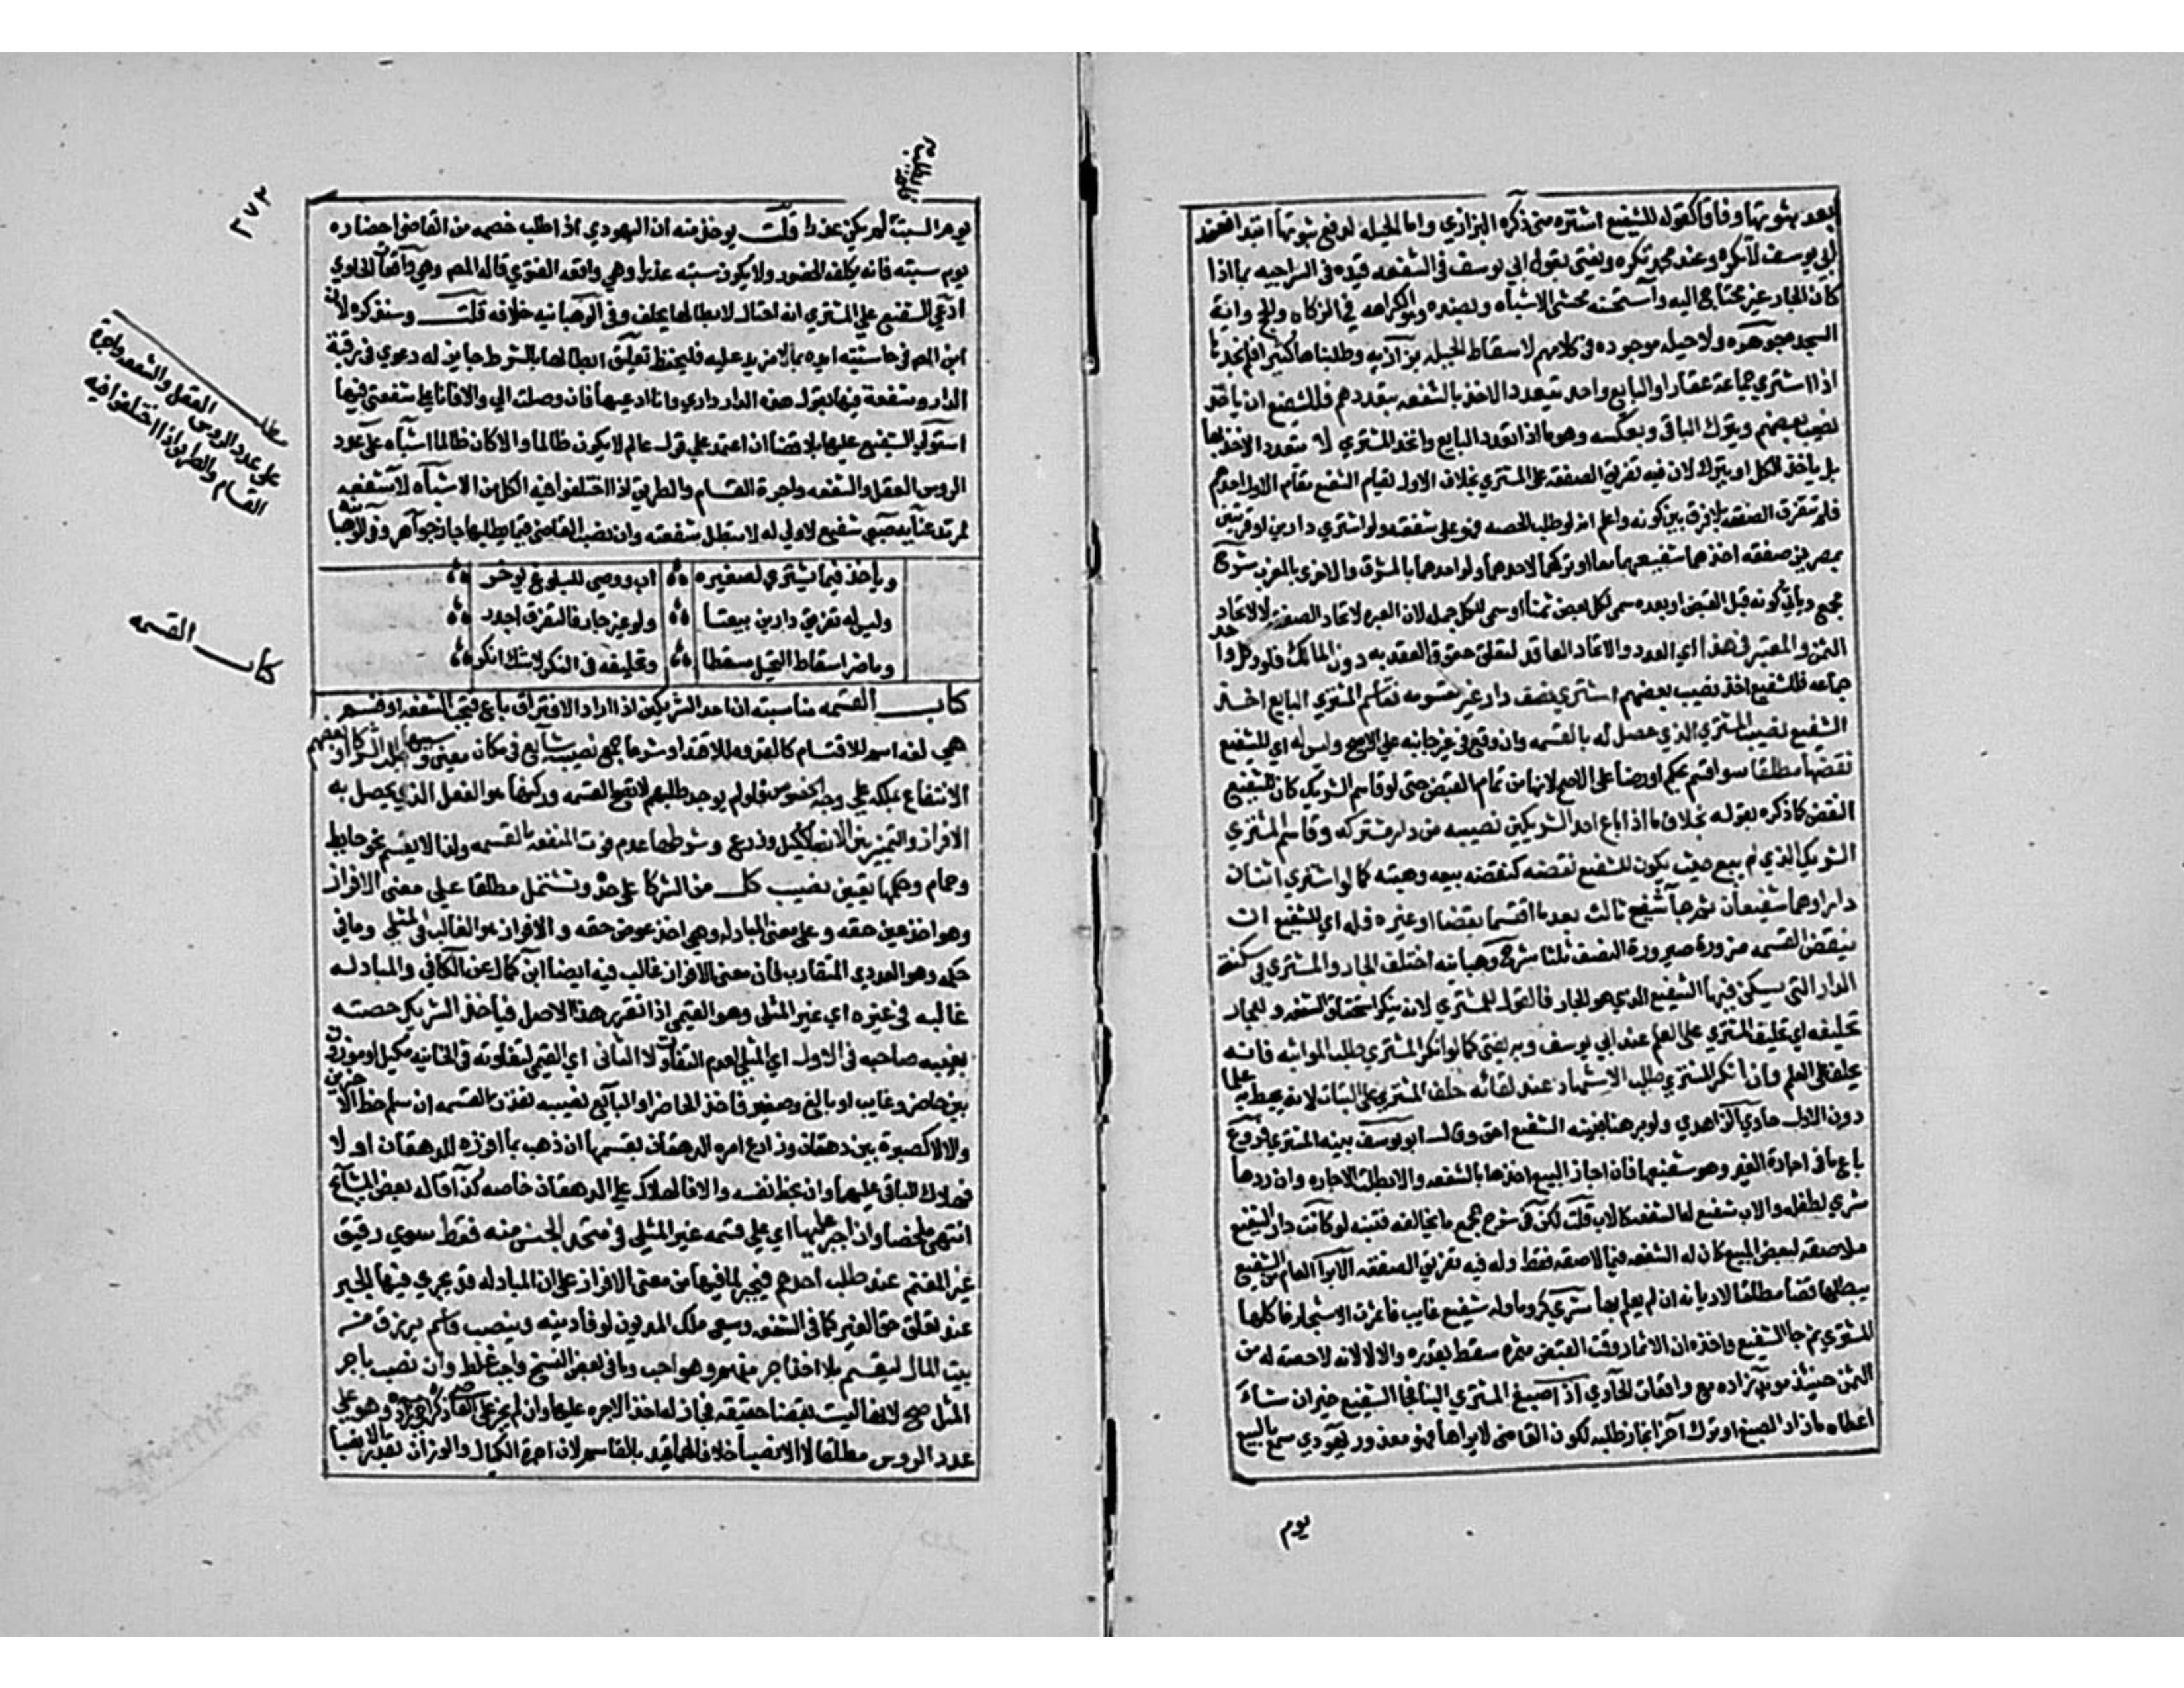 بعد ثبوتها وفاقا كقوله للشفيع اشتره مني ذكره البزازي واما الحيله لدفع ثبوتها ابتدا فعند
ابي يوسف لا تكره وعند محمد تكره ويفتى بقول ابي يوسف في الشفعه قيده في السراجيه بما اذا
كان الجار غير محتاج اليه واستحسنه محشي الاشباه وبضده وهو الكراهه في الزكاه والحج واية
السجده جوهره ولا حيله موجوده في كلامهم لاسقاط الحيله بزازيه وطلبناها كثيرا فلم نجدها
اذا اشتري جماعة عقارا والبايع واحد تتعدد الاخذ بالشفعه بتعددهم فللشفيع ان ياخذ
نصيب بعضهم ويترك الباقي وبعكسه وهو ما اذا تعدد البايع واتحد المشتري لا تتعدد الاخذ بها
بل ياخذ الكل او يترك لان فيه تفريق الصفقه على المشتري بخلاف الاول لقيام الشفيع مقام الاول احدهم
فلم تتفرق الصفقه بلا فرق بين كونه واعلم انه لو طلب الحصه فهو على شفعته ولو اشتري دارين او قريتين
بمصرين صفقه اخذهما شفيعهما معا او تركهما لا احدهما ولو احدهما بالمشرق والاخرى بالمغرب شرح
مجمع وياتي كونه قبل القبض او بعده سمى لكل بعض ثمنا او سمى للكل جمله لان العبره لاتحاد الصفقه لا لاتحاد
الثمن والمعتبر في هذا اي العدد والاتحاد العاقد لتعلق حقوق العقد به دون المالك فلو وكل واحد
جماعه فللشفيع اخذ نصيب بعضهم اشتري نصف دار غير مقسومه فقاسم المشتري البايع اخذ
الشفيع نصيب المشتري الذي حصل له بالقسمه وان وقع في غير جانبه على الاصح وليس له اي للشفيع
نقضها مطلقا سوا قسم بحكم او رضا على الاصح لانها من تمام القبض حتى لو قاسم الشريك كان للشفيع
النقض كما ذكره بقوله بخلاف ما اذا باع احد الشريكين نصيبه من دار مشتركه وقاسم المشتري
الشريك الذي لم يبع حيث يكون للشفيع نقضه كنقضه بيعه وهبته كما لو اشتري اثنان
دارا وهما شفيعان ثم جا شفيع ثالث بعد ما اقتسما بقضا او غيره فله اي للشفيع ان
ينقض القسمه ضرورة صيرورة النصف ثلثا شرح وهبانيه اختلف الجار والمشتري في سكنه
الدار التي يسكن فيها الشفيع الذي هو الجار فالقول للمشتري لانه ينكر استحقاق الشفعه وللجار
تحليفه اي تحليف المشتري على العلم عند ابي يوسف وبه يفتى كما لو انكر المشتري طلب المواثبه فانه
يحلف على العلم وان انكر المشتري طلب الاشهاد عند لقائه حلف المشتري على البتات لانه يحيط به علما
دون الاول حاوي الزاهدي ولو برهنا فبينه الشفيع احق وقال ابو يوسف بينه المشتري فروع
باع ما في اجارة الغير وهو شفيعها فان اجاز البيع اخذها بالشفعه والا بطلت الاجاره وان ردها
شري لطفله والاب شفيع له الشفعه كالاب قلت لكن في شرح المجمع ما يخالفه فتنبه لو كانت دار الشفيع
ملاصقه لبعض المبيع كان له الشفعه فيما لاصقه فقط وله فيه تفريق الصفقه الابرا العام من الشفيع
يبطلها قضا مطلقا لا ديانه ان لم يعلم بها شري كرما وله شفيع غايب فاثمرت الاشجار فاكلها
المشتري ثم جا الشفيع واخذه ان الاثمار وقت القبض مثمره سقط بقدره والا لا لانه لا حصه له من
الثمن حينئذ مويد زاده مع واقعات الحاوي اذا صبغ المشتري البنا فجا الشفيع خير ان شاء
اعطاه ما زاد الصبغ او ترك اخر الجار طلبه لكون القاضي لا يراها فهو معذور يهودي سمع بالبيع
يوم
يوم السبت لم يكن عذرا قلت يوخذ منه ان اليهودي اذا طلب خصمه من القاضي احضاره
يوم سبته فانه يكلفه الحضور ولا يكون سبته عذرا وهي واقعه الفتوي قاله المص وهي واقعات الحاوي
ادعي الشفيع علي المشتري انه احتال لابطالها يحلف وفي الوهبانيه خلافه قلت وسنذكره لان
ابن المص في حاشيته ايده بما لا مزيد عليه فليحفظ تعليق ابطالها بالشرط جايز له دعوي في رقبة
الدار وشفعة فيها يقول هذه الدار داري وانا ادعيها فان وصلت الي والا فانا على شفعتي فيها
استولي الشفيع عليها بلا قضا ان اعتمد على قول عالم لا يكون ظالما والا كان ظالما اشباه على عدد
الروس العقل والشفعه واجرة القسام والطريق اذا اختلفوا فيه الكل من الاشباه لا شفعه
لمرتد عنايه صبي شفيع لا ولي له لا تبطل شفعته وان نصب القاضي قيما يطلبها جاز جواهر وفي الوهبانيه
وياخذ فيما يشتري لصغيره اب ووصي للبلوغ يوخر
وليس له تفريق دارين بيعتا ولو غير جار فالتفرق اجدر
وما ضر اسقاط التحيل مسقطا وتحليفه في النكر لا شك انكر
كتاب القسمه مناسبته ان احد الشريكين اذا اراد الافتراق باع فتجب الشفعه او قسم
هي لغه اسم للاقتسام كالقدوه للاقتدا وشرعا جمع نصيب شايع في مكان معين وسببها طلب الشركا او بعضهم
الانتفاع بملكه علي وجه الخصوص فلو لم يوجد طلبهم لا تصح القسمه وركنها هو الفعل الذي يحصل به
الافراز والتمييز بين الانصبا ككيل وذرع وشرطها عدم فوت المنفعه بالقسمه ولذا لا يقسم نحو حايط
وحمام وحكمها تعيين نصيب كل من الشركا على حده وتشتمل مطلقا علي معنى الافراز
وهو اخذ عين حقه وعلى معنى المبادله وهي اخذ عوض حقه والافراز هو الغالب في المثلي وما في
حكمه وهو العددي المتقارب فان معنى الافراز غالب فيه ايضا ابن كمال عن الكافي والمبادله
غالبه في غيره اي غير المثلى وهو القيمي اذا تقرر هذا الاصل فياخذ الشريك حصته
بغيبه صاحبه في الاول اي المثلي لعدم التفاوت لا الثاني اي القيمي لتفاوته في الخانيه مكيل او موزون
بين حاضر وغايب او بالغ وصغير فاخذ الحاضر او البالغ نصيبه نفذت القسمه ان سلم حظ الاخرين
والا لا كصبرة بين دهقان وزارع امره الدهقان بقسمتها ان ذهب بما افرزه للدهقان اولا
فهلاك الباقي عليهما وان بحظ نفسه والا فالهلاك علي الدهقان خاصه كذا قاله بعض المشايخ
انتهى ملخصا وان اجبر عليها اي على قسمه غير المثلي في متحد الجنس منه فقط سوي رقيق
غير المغنم عند طلب احدهم فيجبر لما فيها من معنى الافراز على ان المبادله قد يجري فيها الجبر
عند تعلق حق الغير كما في الشفعه وبيع ملك المديون لوفا دينه وينصب قاسم يرزق من
بيت المال ليقسم بلا اخذ اجر منهم وهو احب وما في بعض النسخ واجب غلط وان نصب باجر
المثل صح لانها ليست بقضا حقيقه فجاز له اخذ الاجره عليها وان لم يجز على القضا ذكره اخي زاده وهو علي
عدد الروس مطلقا لا الانصبا خلافا لهما قيد بالقاسم لان اجرة الكيال والوزان بقدر الانصبا
٣٧٢
مطلب العقل والشفعه واجرة
علي عدد الروس
القسام والطريق اذا اختلفوا فيه
كتاب القسمه